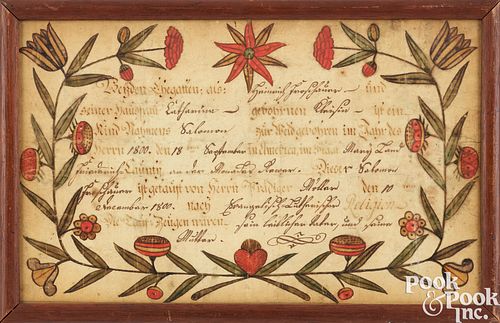 Beyden Ehegatten, als: Heinrich Froschauer — und
seiner Hausfrau Catharina — gebohrnen ist ein
Kind Nahmens Salomon zur Welt gebohren im Jahr des
Herrn 1800. den 18 September in America, im Staat Mary Land
Friederich Caunty, an der Dieser Salomon
Froschauer ist getauft von Herrn Prediger den 10
December 1800. nach Evangelisch Lutherischer Religion
Die Tauf-Zeugen waren sein leiblicher Vater, und seine
Mutter.
POOK
& POOK
Inc.